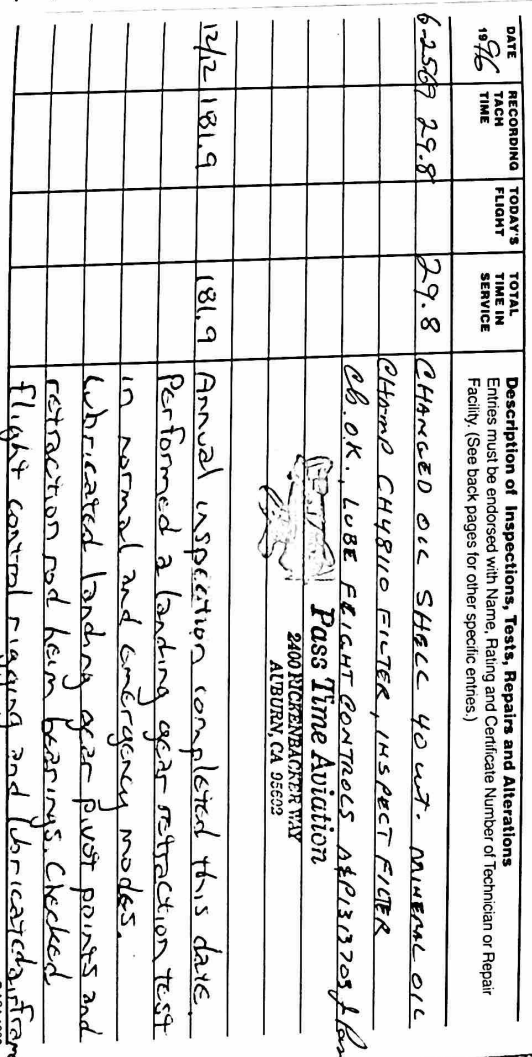 DATE
1996
RECORDING TACH TIME
TODAY'S FLIGHT
TOTAL TIME IN SERVICE
Description of Inspections, Tests, Repairs and Alterations
Entries must be endorsed with Name, Rating and Certificate Number of Technician or Repair
Facility. (See back pages for other specific entries.)
29.8 29.8 CHANGED OIL SHELL 40 WT. MINERAL OIL
CHAMP CH48110 FILTER, INSPECT FILTER
O.K., LUBE FLIGHT CONTROLS A&P
Pass Time Aviation
2400 RICKENBACKER WAY
AUBURN, CA
12/12 181.9 181.9 Annual inspection completed this date.
Performed a landing gear retraction test
in normal and emergency modes.
Lubricated landing gear pivot points and
retraction rod heim bearings. Checked
flight control rigging and lubricated